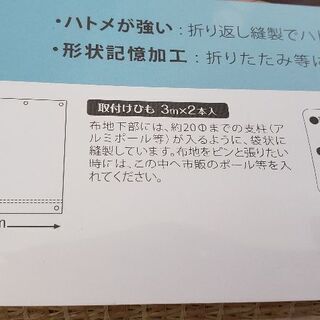 ・ハトメが強い:折り返し縫製でハト
・形状記憶加工:折りたたみ等に
取付けひも 3m×2本入
布地下部には、約20Φまでの支柱(ア
ルミポール等)が入るように、袋状に
縫製しています。布地をピンと張りたい
時には、この中へ市販のポール等を入
れてください。
m